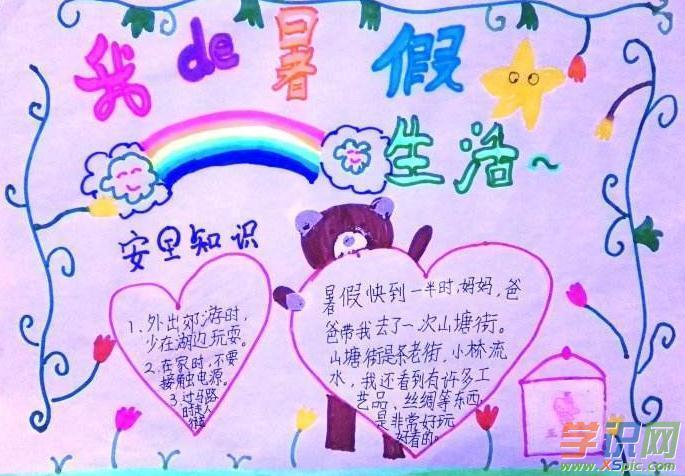 我de暑假
生活~
安里知识
1、外出郊游时,
少在湖边玩耍。
2.在家时,不要
接触电源。
3.过马路
时走人
暑假快到一半时,妈妈,爸
爸带我去了一次山塘街。
山塘街是条老街,小林流
水,我还看到有许多工
艺品、丝绸等东西,
是非常好玩
好看的。
学识网
www.XSpic.com